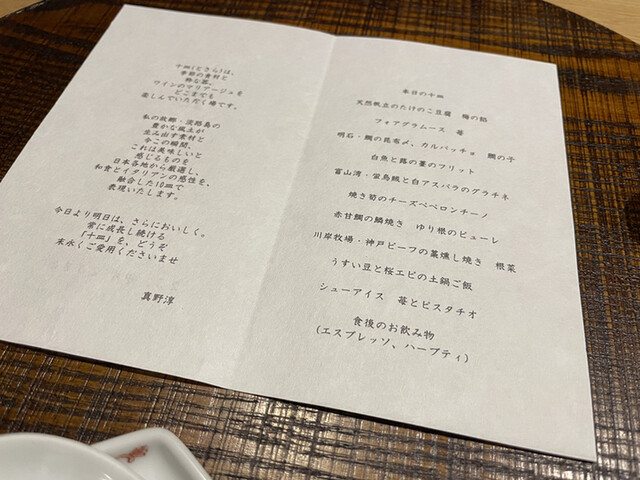 十皿(とさら)は、
季節の素材と
粋な器、
ワインのマリアージュを
どこまでも
楽しんでいただく場です。
私の故郷・淡路島の
豊かな風土が
生み出す素材と
今この瞬間、
これは美味しいと
感じるものを
日本各地から厳選し、
和食とイタリアンの感性を、
融合した10皿で
表現いたします。
今日より明日は、さらにおいしく。
常に成長し続ける
「十皿」を、どうぞ
末永くご愛用くださいませ
真野淳
本日の十皿
天然帆立のたけのこ豆腐 梅の餡
フォアグラムース 苺
明石・鯛の昆布〆、カルパッチョ 鯛の子
白魚と蕗の薹のフリット
富山湾・蛍烏賊と白アスパラのグラチネ
焼き筍のチーズペペロンチーノ
赤甘鯛の鱗焼き ゆり根のピューレ
川岸牧場・神戸ビーフの藁燻し焼き 根菜
うすい豆と桜エビの土鍋ご飯
シューアイス 苺とピスタチオ
食後のお飲み物
(エスプレッソ、ハーブティ)